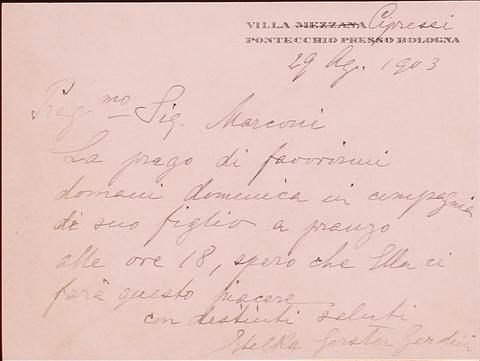 VILLA MEZZANA Cipressi
PONTECCHIO PRESSO BOLOGNA
29 Ag. 1903
Preg.mo Sig. Marconi
La prego di favorirmi
domani domenica in compagnia
di suo figlio a pranzo
alle ore 18, spero che Ella ci
farà questo piacere
con distinti saluti
Etelka Gerster Gardini